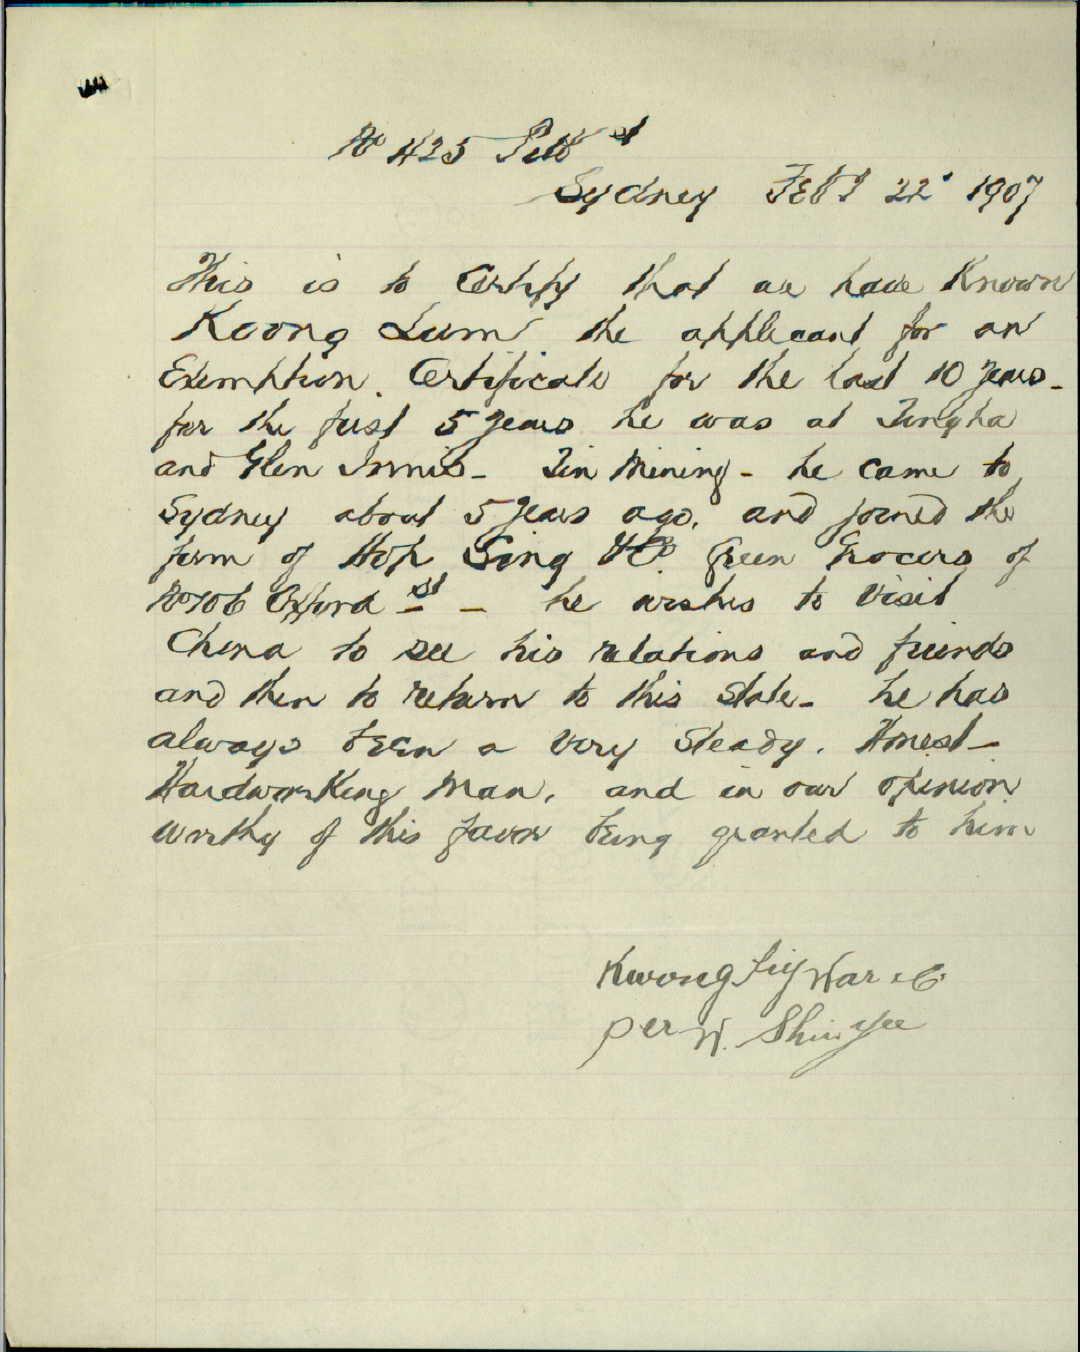 No 425 Pitt St
Sydney Feby 22' 1907
This is to Certify that we have Known
Koong Lum the applicant for an
Exemption Certificate for the last 10 years -
for the first 5 years he was at Tingha
and Glen Innes - Tin Mining - he came to
Sydney about 5 years ago, and joined the
firm of Hop Sing & Co. Green Grocers of
No 106 Oxford St - he wishes to Visit
China to see his relations and friends
and then to return to this State - he has
always been a very Steady. Honest -
Hardworking Man, and in our opinion
worthy of this favor being granted to him
Kwong War & Co
per W. Shin Yee